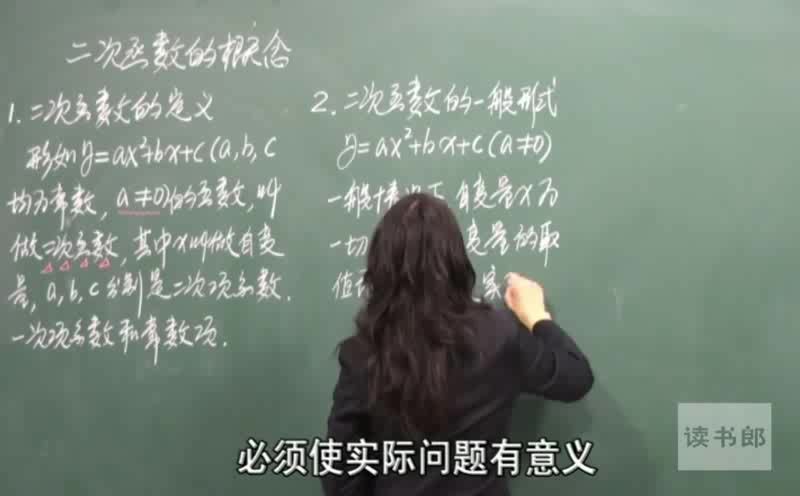 二次函数的概念
1. 二次函数的定义
形如y=ax²+bx+c(a,b,c
均为常数, a≠0)的函数,叫
做二次函数,其中x叫做自变
量, a,b,c分别是二次项系数,
一次项系数和常数项.
2. 二次函数的一般形式
y=ax²+bx+c(a≠0)
一般情况下 自变量x为
一切 变量的取
值 实
必须使实际问题有意义
读书郎